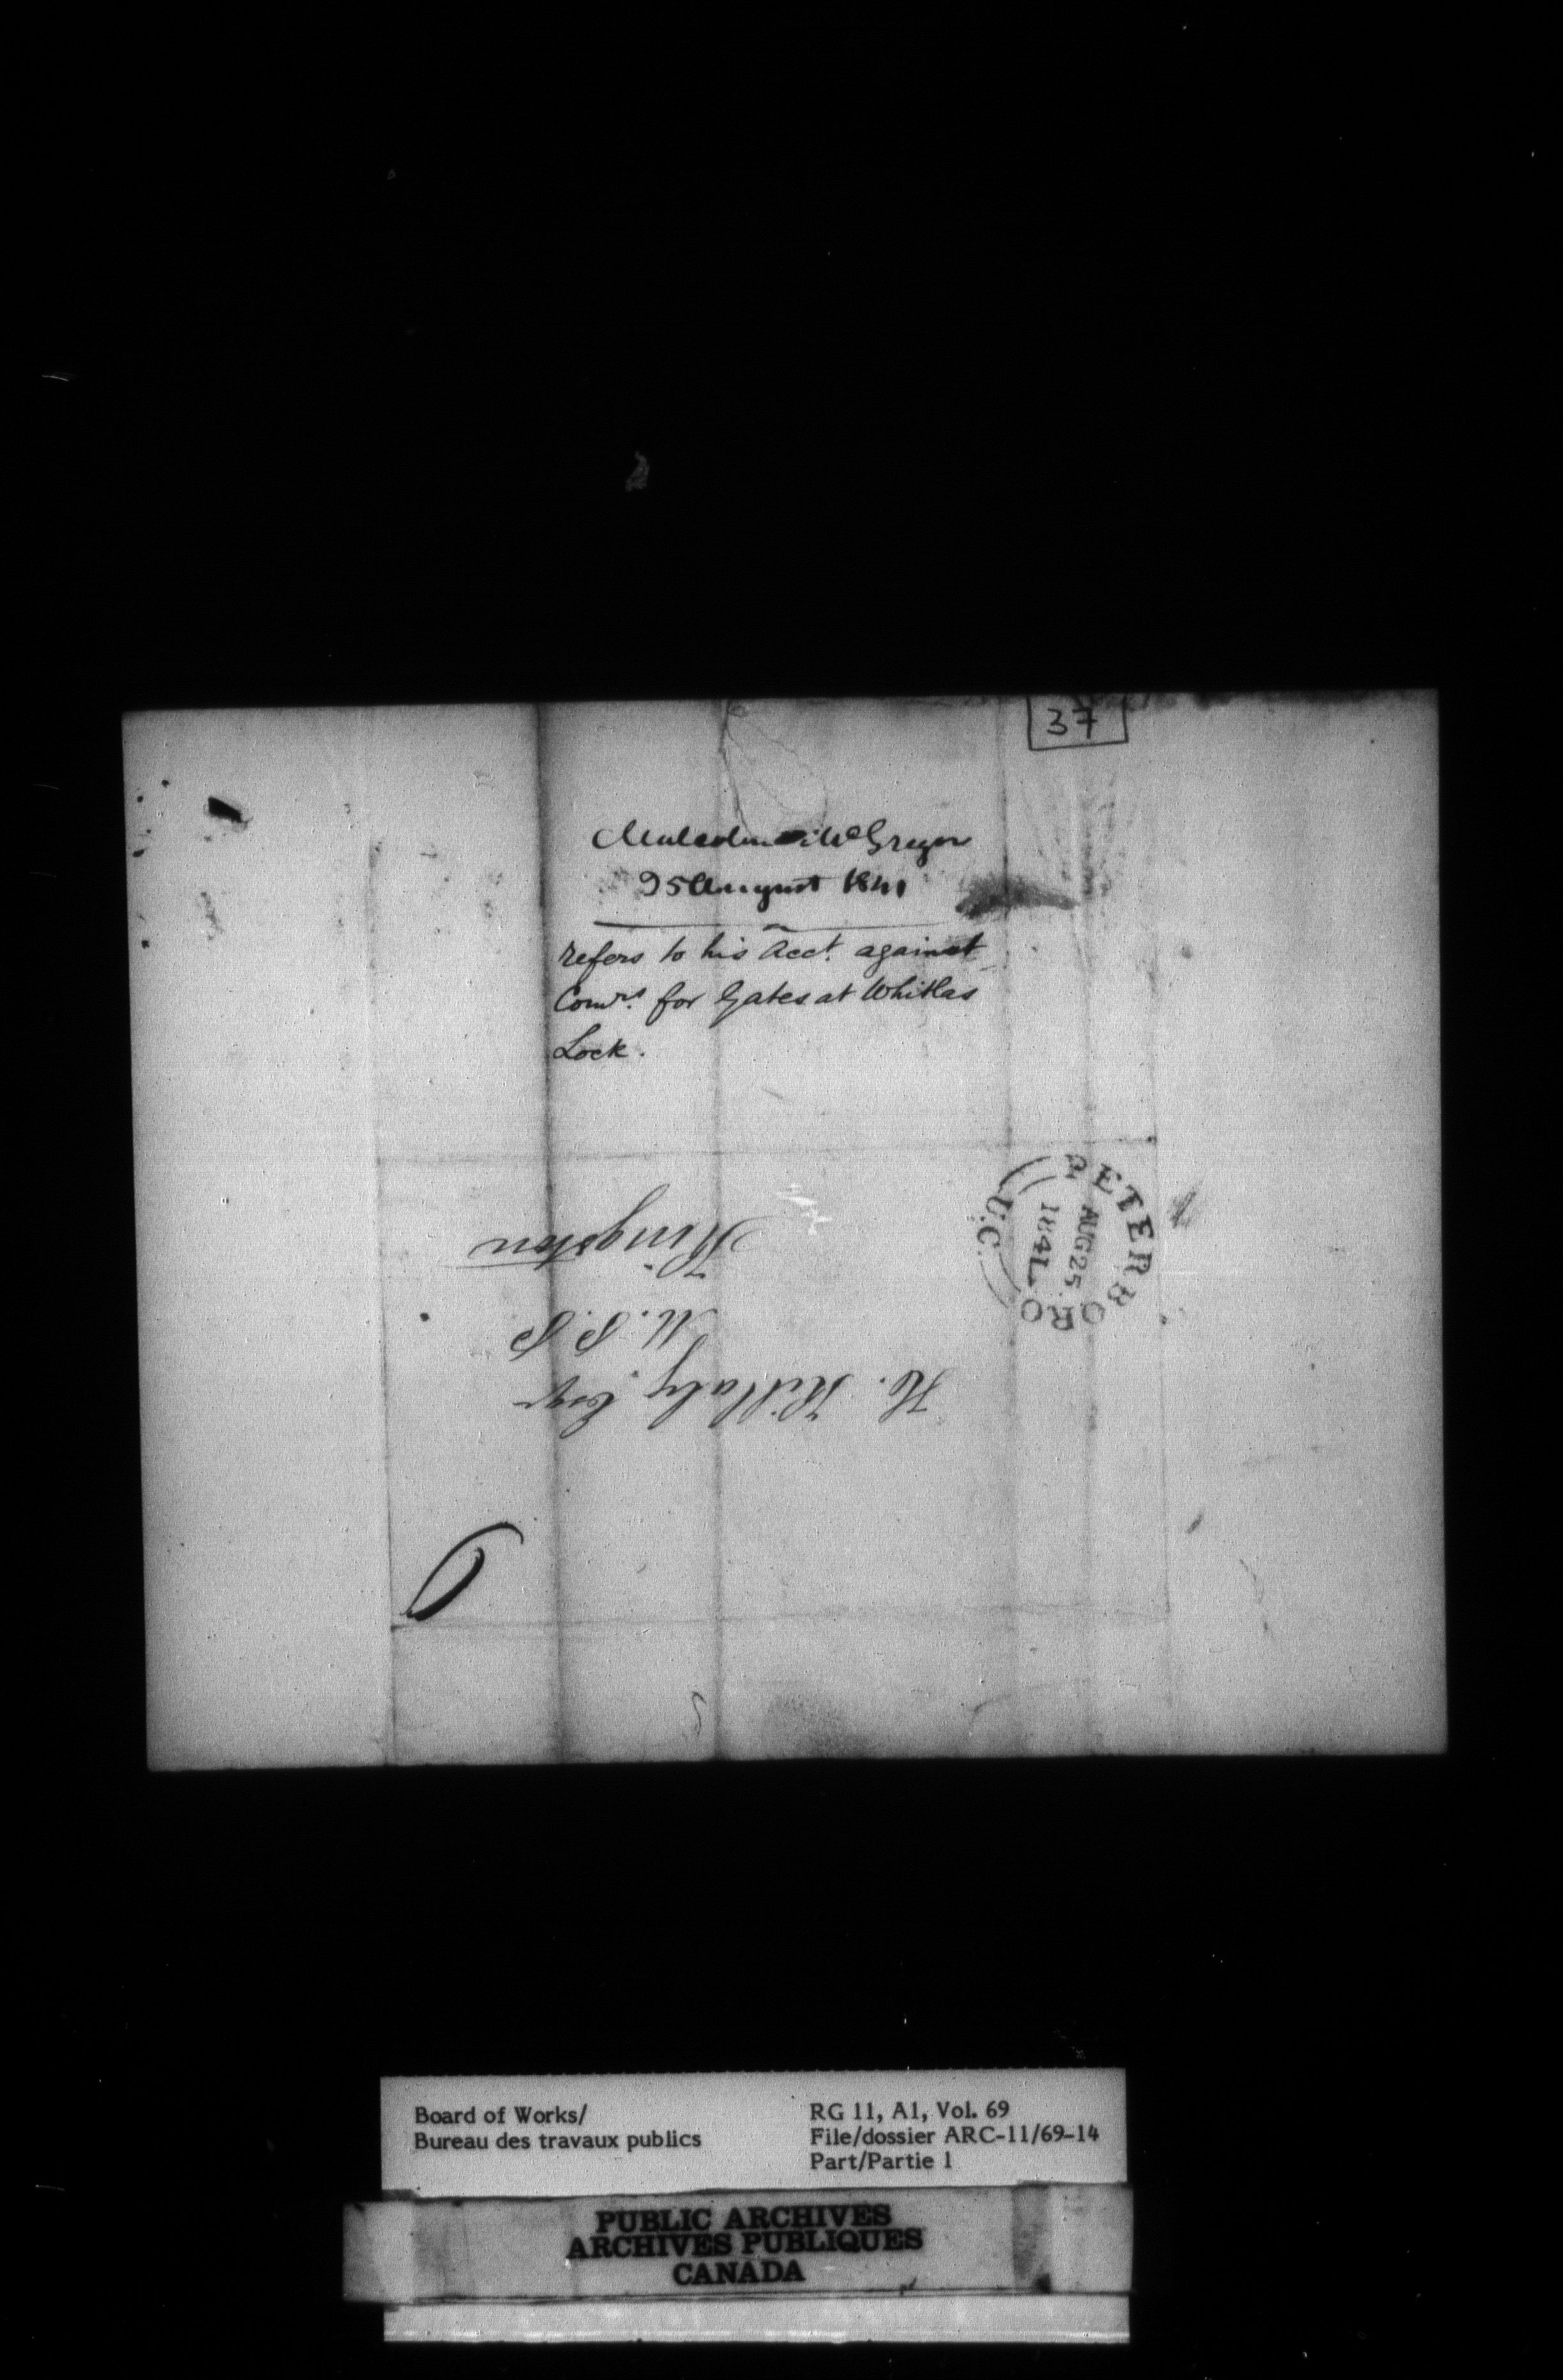 37
Malcolm McGregor
25 August 1841
refers to his Acct. against
Comrs. for Gates at Whitlas
Lock.
PETERBORO
AUG 25
1841
U.C.
H. Killaly Esqr
M.P.P
Kingston
Board of Works/
Bureau des travaux publics
RG 11, A1, Vol. 69
File/dossier ARC-11/69-14
Part/Partie 1
PUBLIC ARCHIVES
ARCHIVES PUBLIQUES
CANADA